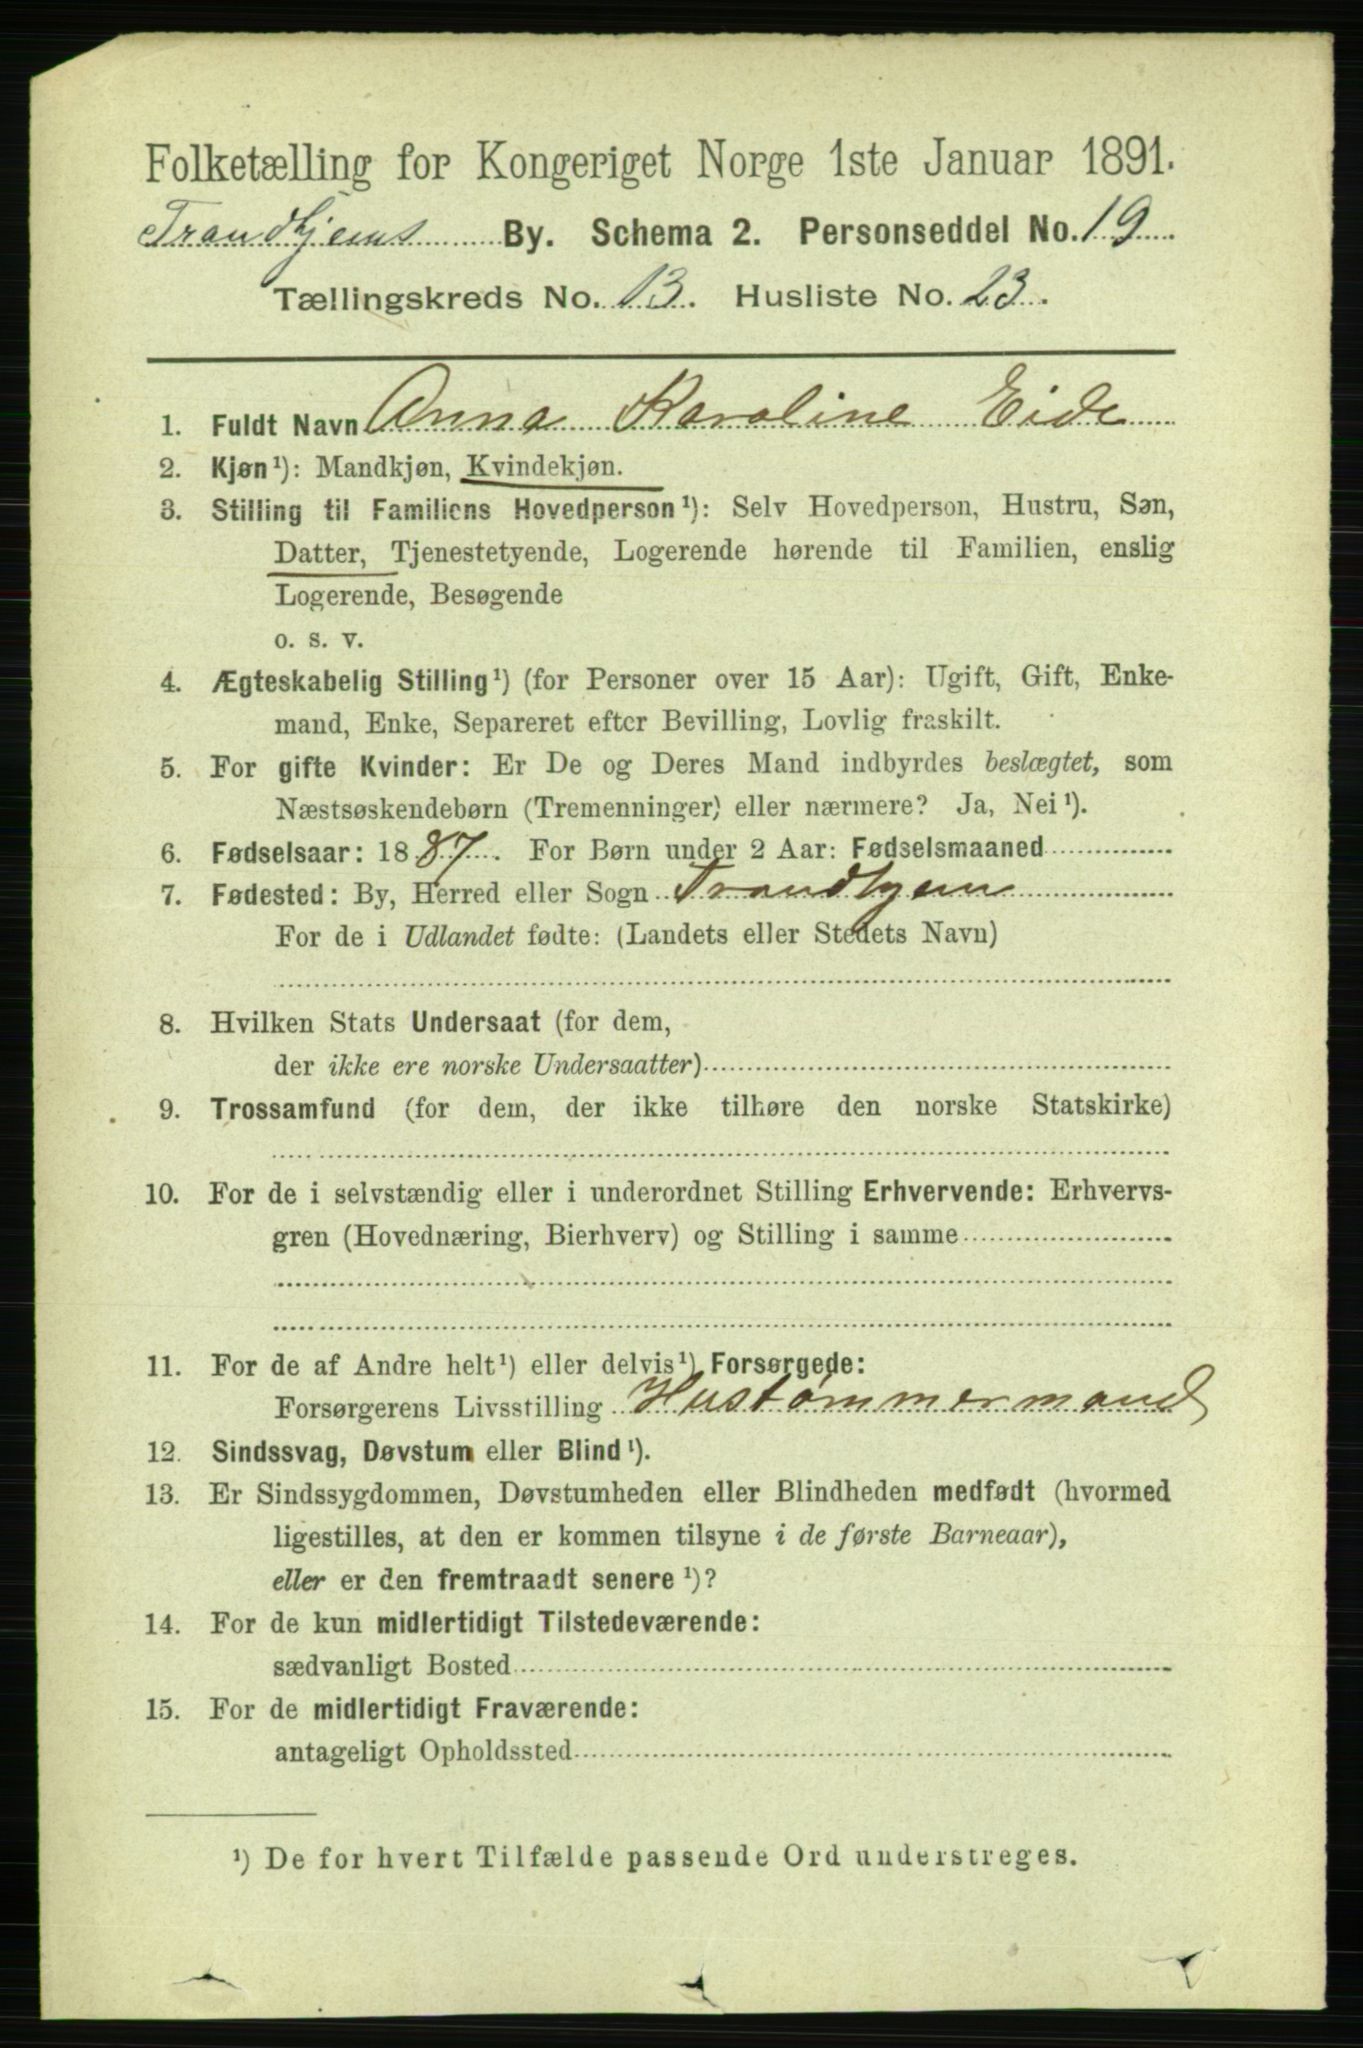 Folketælling for Kongeriget Norge 1ste Januar 1891.
Trondhjems By. Schema 2. Personseddel No. 19
Tællingskreds No. 13. Husliste No. 23.
1. Fuldt Navn Anna Karoline Eide
2. Kjøn¹): Mandkjøn, Kvindekjøn.
3. Stilling til Familiens Hovedperson¹): Selv Hovedperson, Hustru, Søn,
Datter, Tjenestetyende, Logerende hørende til Familien, enslig
Logerende, Besøgende
o. s. v.
4. Ægteskabelig Stilling¹) (for Personer over 15 Aar): Ugift, Gift, Enke-
mand, Enke, Separeret efter Bevilling, Lovlig fraskilt.
5. For gifte Kvinder: Er De og Deres Mand indbyrdes beslægtet, som
Næstsøskendebørn (Tremenninger) eller nærmere? Ja, Nei¹).
6. Fødselsaar: 1887. For Børn under 2 Aar: Fødselsmaaned
7. Fødested: By, Herred eller Sogn Trondhjem
For de i Udlandet fødte: (Landets eller Stedets Navn)
8. Hvilken Stats Undersaat (for dem,
der ikke ere norske Undersaatter)
9. Trossamfund (for dem, der ikke tilhøre den norske Statskirke)
10. For de i selvstændig eller i underordnet Stilling Erhvervende: Erhvervs-
gren (Hovednæring, Bierhverv) og Stilling i samme
11. For de af Andre helt¹) eller delvis¹) Forsørgede:
Forsørgerens Livsstilling Hustømmermand
12. Sindssvag, Døvstum eller Blind¹).
13. Er Sindssygdommen, Døvstumheden eller Blindheden medfødt (hvormed
ligestilles, at den er kommen tilsyne i de første Barneaar),
eller er den fremtraadt senere¹)?
14. For de kun midlertidigt Tilstedeværende:
sædvanligt Bosted
15. For de midlertidigt Fraværende:
antageligt Opholdssted
¹) De for hvert Tilfælde passende Ord understreges.